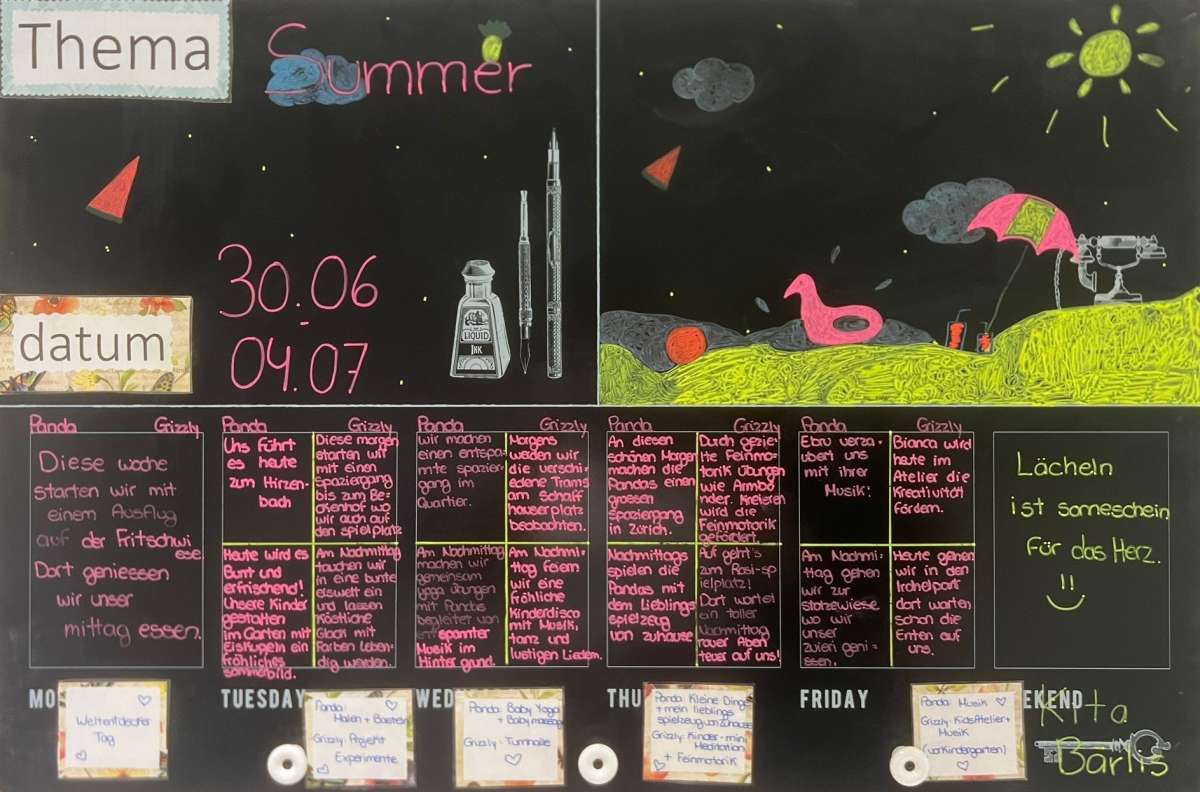 Thema
Summer
datum
30.06
-
04.07
LIQUID
INK
Panda Grizzly
Diese woche
starten wir mit
einem Ausflug
auf der Fritschwi
ese.
Dort geniessen
wir unser
mittag essen.
MO
Weltentdecker
Tag
Panda Grizzly
Uns führt
es heute
zum Hirzen-
bach
Diese morgen
starten wir
mit einen
Spaziergang
bis zum Be-
ckenhof wo
wir auch auf
den spielplatz
Heute wird es
Bunt und
erfrischend!
Unsere Kinder
gestalten
im Garten mit
Eiskugeln ein
fröhliches
sommerbild.
Am Nachmittag
tauchen wir
in eine bunte
eiswelt ein
und lassen
Köstliche
Glacé mit
Farben Leben-
dig werden.
TUESDAY
Panda:
Malen + Basteln
Grizzly: Projekt
Experimente
Panda Grizzly
Wir machen
einen entspa-
nnte spazier-
gang im
Quartier.
Morgens
werden wir
die verschi-
edene Trams
am Schaff
hauserplatz
beobachten.
Am Nachmittag
machen wir
gemeinsam
yoga übungen
mit Pandas
begleitet von
entspannter
Musik im
Hinter grund.
Am Nachmi-
ttag feiern
wir eine
fröhliche
Kinderdisco
mit Musik,
tanz und
lustigen Liedern.
WED
Panda: Baby Yoga
+ Babymassage
Grizzly: Turnhalle
Panda Grizzly
An diesen
schönen Morgen
machen die
Pandas einen
grossen
spaziergang
in Zürich.
Durch gezie-
lte Feinmo-
torik Übungen
wie Armbä
nder. Kreieren
wird die
Feinmotorik
gefördert.
Nachmittags
spielen die
Pandas mit
dem Lieblings
spielzeug
von zuhause
Auf geht's
zum Rosi-sp
ielplatz!
Dort wartet
ein toller
Nachmittag
voller Aben
teuer auf uns!
THU
Panda: Kleine Dinge
+ mein lieblings
spielzeug von zuhause
Grizzly: Kinder-mini
Meditation
+ Feinmotorik
Panda Grizzly
Ebru verza-
ubert uns
mit ihrer
Musik!
Bianca wird
heute im
Atelier die
Kreativität
fördern.
Am Nachmi-
ttag gehen
wir zur
Stolzewiese
wo wir
unser
zvieri geni-
essen.
Heute gehen
wir in den
Irchelpark
dort warten
schon die
Enten auf
uns.
FRIDAY
Panda: Musik
Grizzly: KidsAtelier+
Musik
(vorKindergarten)
Lächeln
ist sonneschein
für das Herz.
!!
EKEND
Kita
Bärlis